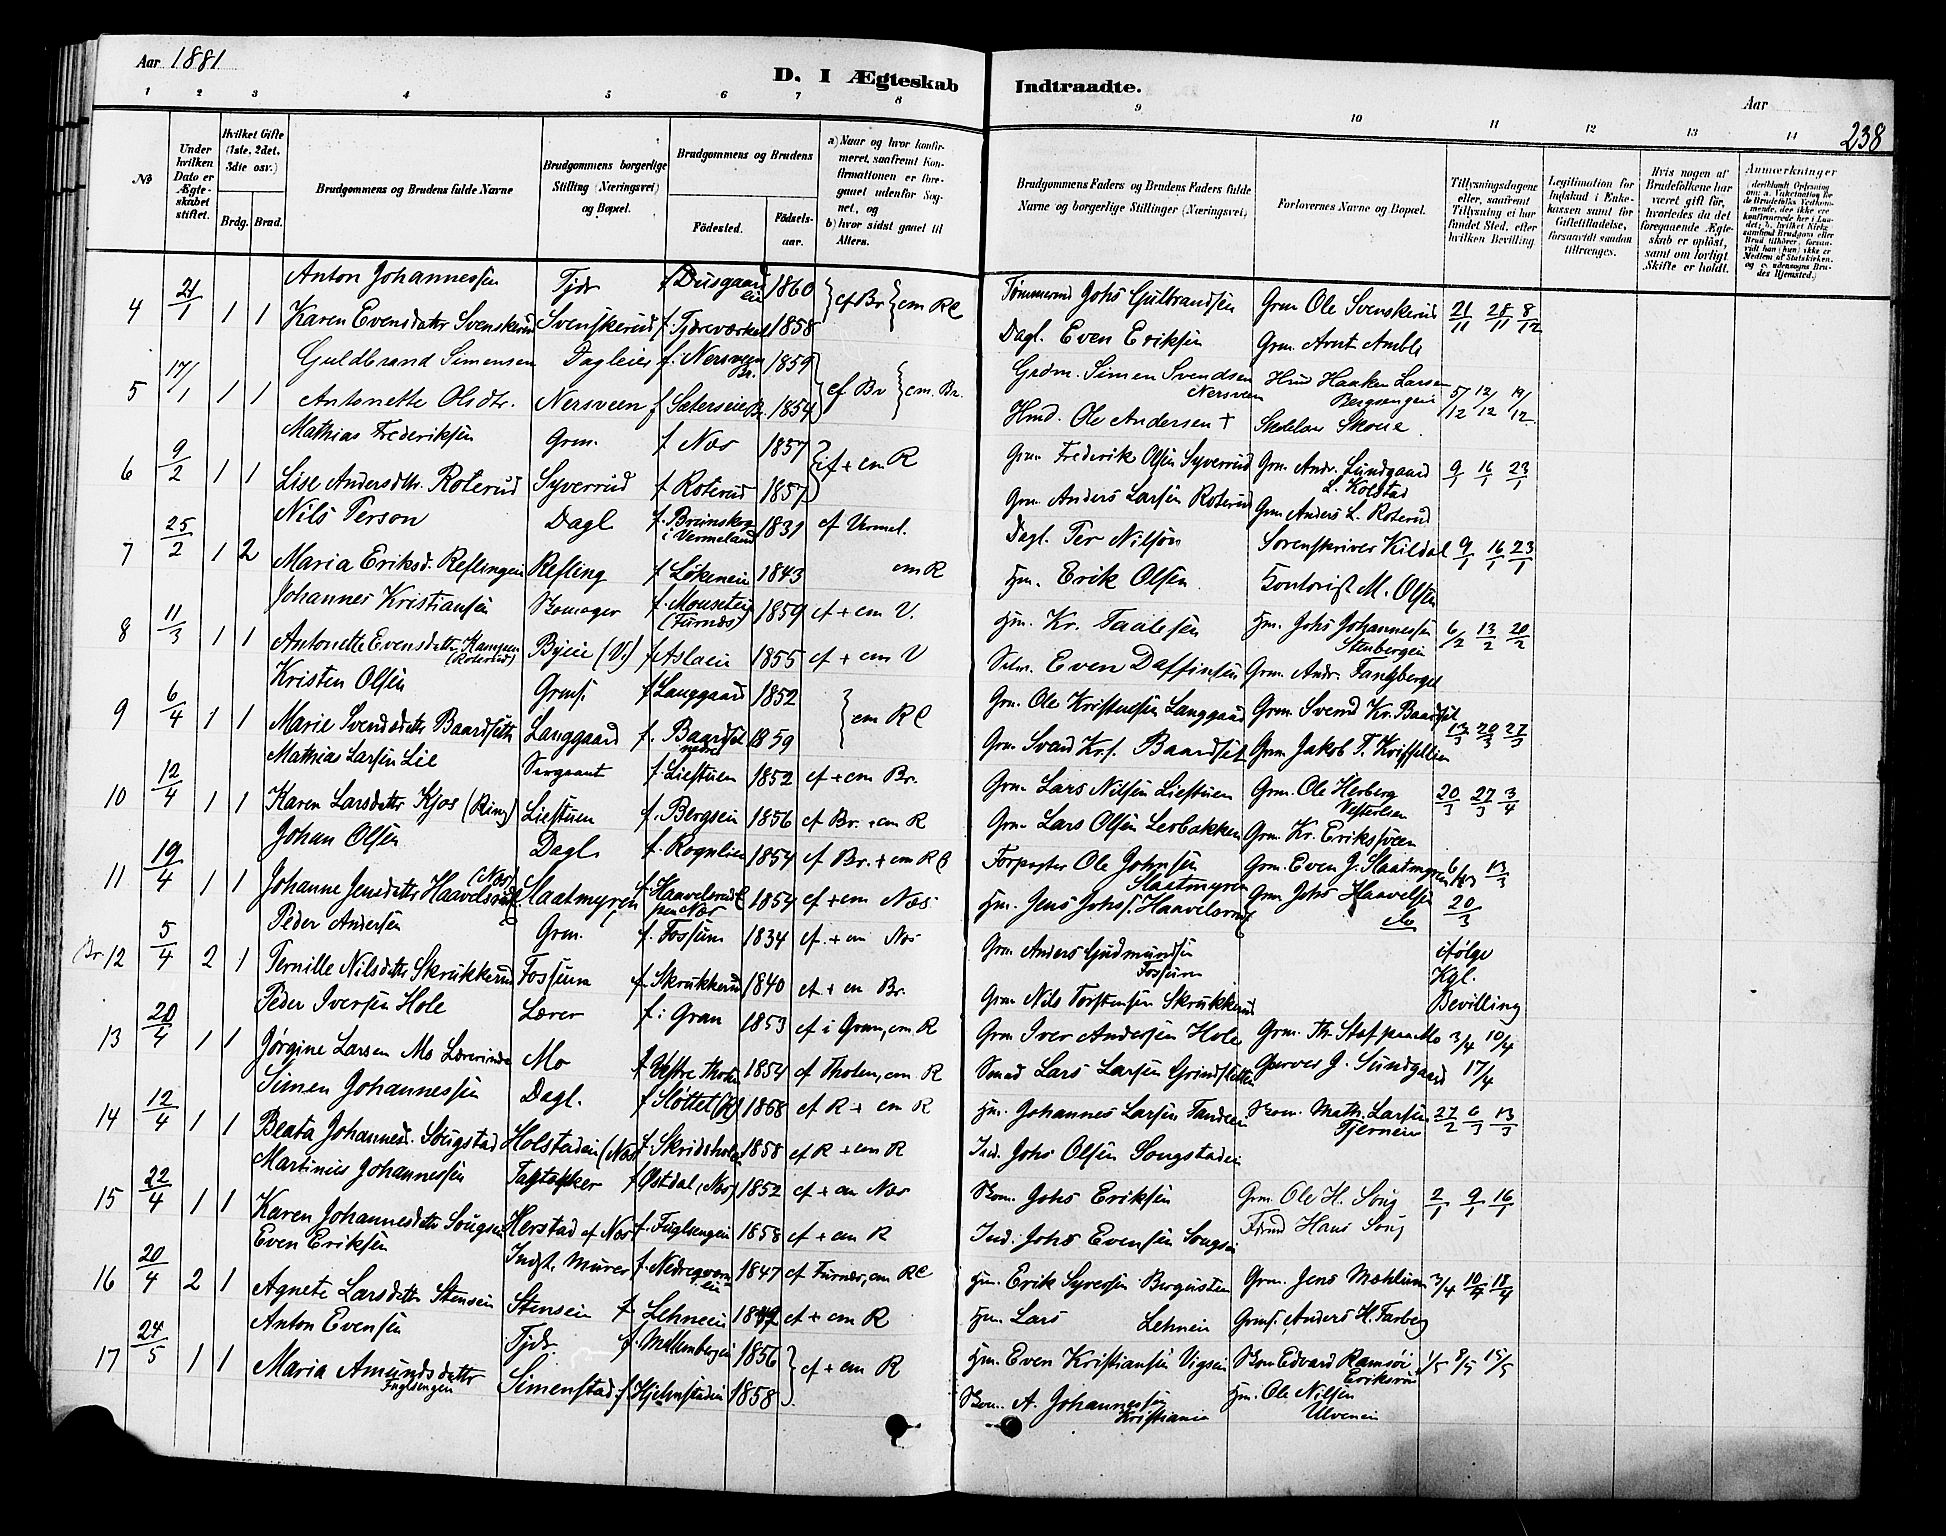 Aar 1881
D. I Ægteskab Indtraadte.
Aar
238
1 2 3 4 5 6 7 8 9 10 11 12 13 14
No
Under hvilken Dato er Ægteskabet stiftet.
Hvilket Gifte (1ste, 2det, 3die osv.)
Brdg. Brud.
Brudgommens og Brudens fulde Navne
Brudgommens borgerlige Stilling (Næringsvei) og Bopæl.
Brudgommens og Brudens
Fødested. Fødselsaar.
a) Naar og hvor konfirmeret, saafremt Konfirmationen er foregaaet udenfor Sognet, og
b) hvor sidst gaaet til Alters.
Brudgommens Faders og Brudens Faders fulde Navne og borgerlige Stillinger (Næringsvei)
Forlovernes Navne og Bopæl.
Tillysningsdagene eller, saafremt Tillysning ei har fundet Sted, efter hvilken Bevilling.
Legitimation for Indskud i Enkekassen samt for Giftetilladelse, forsaavidt saadan tiltrænges.
Hvis nogen af Brudefolkene har været gift før, hvorledes da det foregaaende Ægteskab er opløst, samt om lovligt Skifte er holdt.
Anmærkninger
4 21/1 1 1 Anton Johannessen Tjdr f Dusgaardeie 1860 cf Br cm Rl Tømmermd Johs Gulbrandsen Grm Ole Svenskerud 21/11 28/11 8/12
Karen Evensdatter Svenskerud Svenskerud f. Tjdreværket 1858 Dagl. Even Eriksen Grm. Arnt Ambli
5 17/1 1 1 Guldbrand Simensen Dagleier f. Nersveen Br. 1859 cf Br cm. Br. Grdm. Simen Svendsen Nersveen Hmd Haaken Larsen Bergsengen 5/12 12/12 19/12
Antonette Olsdtr. Nersveen f Sætereie Br. 1854 Hmd. Ole Andersen + Skolelær Skoue
6 9/2 1 1 Mathias Frederiksen Grm. f Næs 1857 cf + cm R Grm Frederik Olsen Syverrud Grm Andr. Lundgaard L. Kolstad 9/1 16/1 23/1
Lise Andersdtr. Roterud Syverrud f Roterud 1857 Grm. Anders Larsen Roterud Grm Anders L. Roterud
7 25/2 1 2 Nils Person Dagl f. Brunskog i Vermeland 1831 cf Vermel. Dagl. Per Nilsøn Sorenskriver Kildal 9/1 16/1 23/1
Maria Eriksd. Reflingen Refling f Løkeneie 1843 cm R Hm. Erik Olsen Kontorist M. Olsen
8 11/3 1 1 Johannes Kristiansen Skomager f. Mouseteie (Furnæs) 1859 cf + cm V. Hm. Kr. Taalesen Hm. Johs Johannessen Stenbergen 6/2 13/2 20/2
Antonette Evensdatter Kampen (Roterud) Byeie (V.) f Aslaeie 1855 cf + cm V Selv. Even Daffinsen Grm. Andr. Fangberget
9 6/4 1 1 Kristen Olsen Grmf. f Langgaard 1852 cm Rl Grm. Ole Kristensen Langgaard Grm Svend Kr. Baardset 13/3 20/3 27/3
Marie Svendsdatter Baardseth Langgaard f. Baardset nedre 1859 Grm Svend Krs. Baardset Grm Jakob T. Kriffellien
10 12/4 1 1 Mathias Larsen Lie Sergeant f. Liestuen 1852 cf + cm Br. Grm Lars Nilsen Liestuen Grm. Ole Herberg Vesterlesen 20/3 27/3 3/4
Karen Larsdatter Kjos (Rem) Liestuen f. Bergseie 1856 cf Br. + cm R Grm Lars Olsen Lerbakken Grm Kr. Eriksveen
11 19/4 1 1 Johan Olsen Dagl f. Rognlien 1854 cf Br. + cm Rl Forpagter Ole Johnsen Slaatmyren Grm. Even J. Slaatmyren 6/3 13/3
Johanne Jensdatter Haavelsrud (Næs) Slaatmyren f. Haavelsrud paa Næs 1854 cf + cm Næs Hm. Jens Johs. Haavelsrud Grm Johs Haavelsen do 20/3
Br. 12 5/4 2 1 Peder Andersen Grm. f. Fossum 1834 cf. + cm Næs Grm Anders Gudmundsen Fossum ifølge Kgl. Bevilling
Pernille Nilsdatter Skrukkerud Fossum f Skrukkerud 1840 cf. + cm Br. Grm Nils Torstensen Skrukkerud
13 20/4 1 1 Peder Iversen Hole Lærer f. i Gran 1853 cf i Gran, cm R Grm Iver Andersen Hole Grm. Th. Staf paa Mo 3/4 10/4
Jørgine Larsen Mo Lærerinde Mo f Vestre Thoten 1854 cf Thoten, cm R Smed Lars Larsen Grindstetten Garver J. Sundgaard 17/4
14 12/4 1 1 Simen Johannessen Dagl. f Slottet (R) 1858 cf R + cm R Hm. Johannes Larsen Tandeeie Skom. Math. Larsen Tjerneie 27/2 6/3 13/3
Beata Johannesd. Sougstad Holstadeie (Næs) f. Skridsholen 1858 cf R + cm R Ind. Johs Olsen Sougstadeie
15 22/4 1 1 Martinus Johannessen Tagtækker f Østdal, (Næs) 1852 cf + cm Næs Skom. Johs Eriksen Grm. Ole H. Soug 2/1 9/1 16/1
Karen Johannesdatter Sougseie Herstad af Næs f. Fuglsengen 1858 cf + cm R Ind. Johs Evensen Sougseie Hans Soug
16 20/4 2 1 Even Eriksen Indst. Murer f. Nedreqværneie 1847 cf Furnæs, cm Rl Hm. Erik Syversen Bergusten Grm. Jens Mæhlum 3/4 10/4 18/4
Agnete Larsdatter Stenseie Stenseie f Lehneie 1842 cf + cm R Hm. Lars Lehneie Grmf. Anders H. Farberg
17 24/5 1 1 Anton Evensen Tjdr. f. Mellembergeie 1856 cf + cm R Hm. Even Kristiansen Vigseie Skom Edvard Ramsøi Eriksrud 1/5 8/5 15/5
Maria Amundsdatter Fuglsengen Simenstad f. Hjelmstadeie 1858 Skom. A. Johannessen Kristiania Hm. Ole Nilsen Ulveneie